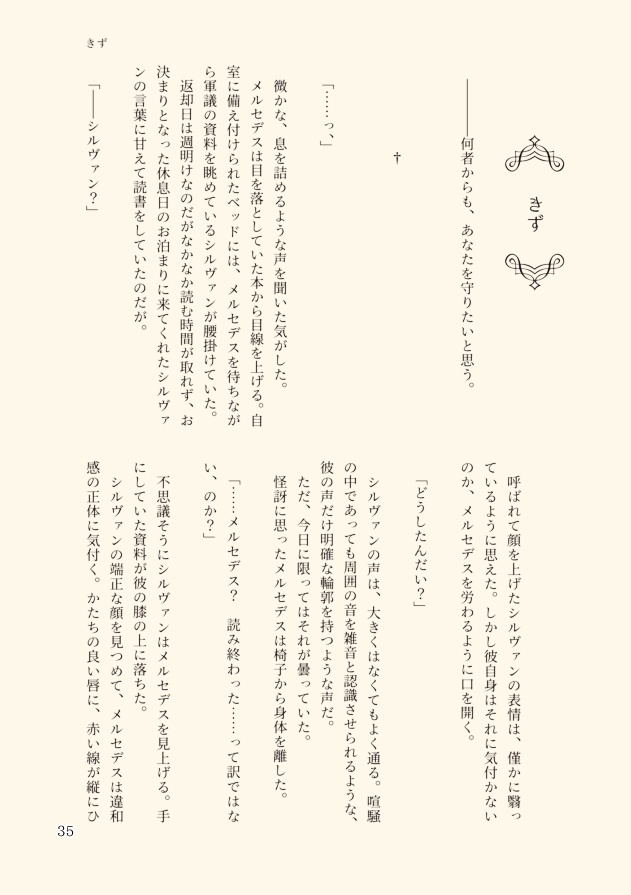 きず
きず
――――何者からも、あなたを守りたいと思う。
†
「……っ、」
微かな、息を詰めるような声を聞いた気がした。
メルセデスは目を落としていた本から目線を上げる。自
室に備え付けられたベッドには、メルセデスを待ちなが
ら軍議の資料を眺めているシルヴァンが腰掛けていた。
返却日は週明けなのだがなかなか読む時間が取れず、お
決まりとなった休息日のお泊まりに来てくれたシルヴァ
ンの言葉に甘えて読書をしていたのだが。
「――シルヴァン？」
呼ばれて顔を上げたシルヴァンの表情は、僅かに翳っ
ているように思えた。しかし彼自身はそれに気付かない
のか、メルセデスを労わるように口を開く。
「どうしたんだい？」
シルヴァンの声は、大きくはなくてもよく通る。喧騒
の中であっても周囲の音を雑音と認識させられるような、
彼の声だけ明確な輪郭を持つような声だ。
ただ、今日に限ってはそれが曇っていた。
怪訝に思ったメルセデスは椅子から身体を離した。
「……メルセデス？　読み終わった……って訳ではな
い、のか？」
不思議そうにシルヴァンはメルセデスを見上げる。手
にしていた資料が彼の膝の上に落ちた。
シルヴァンの端正な顔を見つめて、メルセデスは違和
感の正体に気付く。かたちの良い唇に、赤い線が縦にひ
35